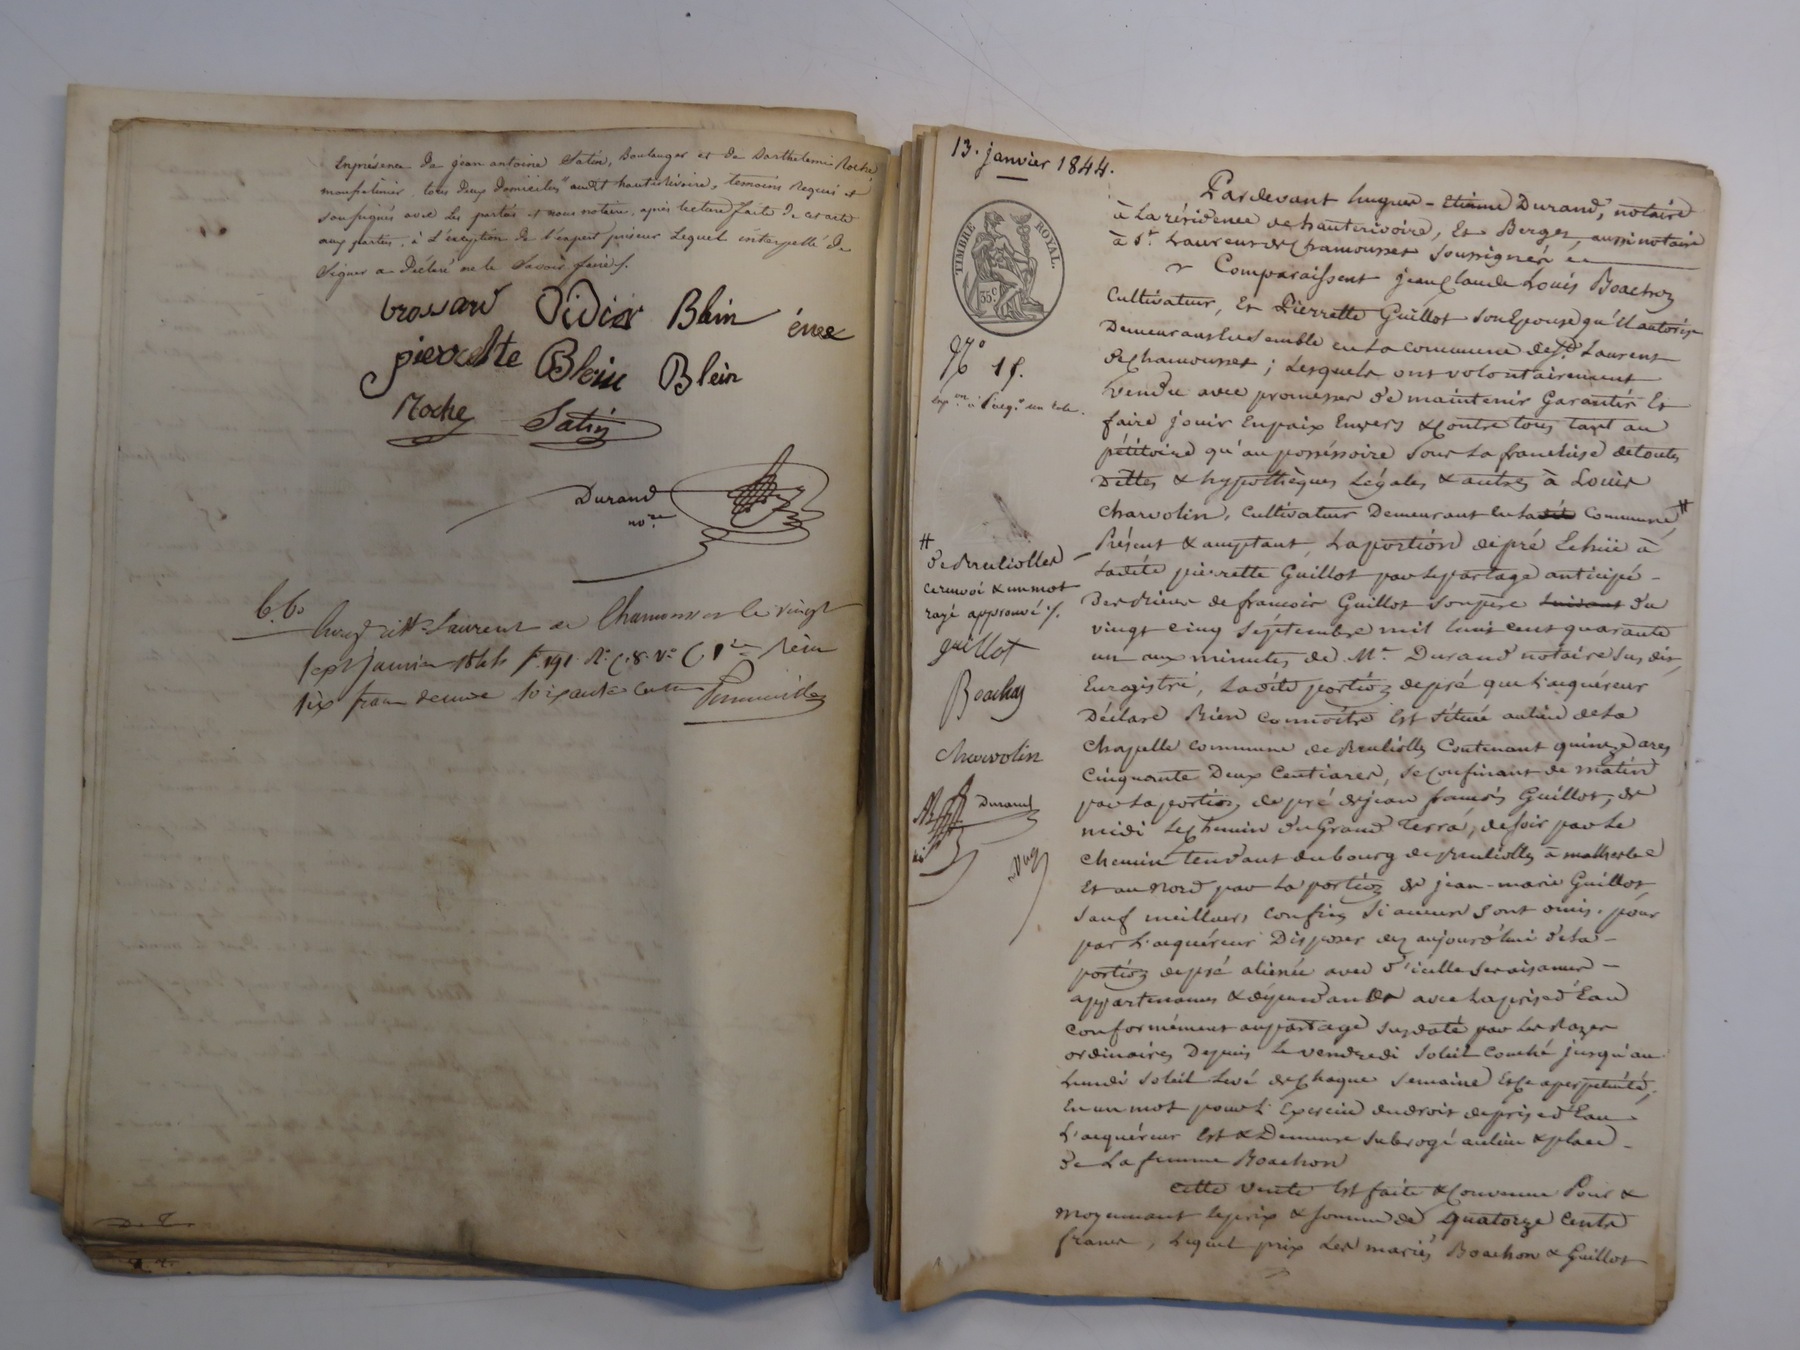 En présence de jean antoine Satin, Boulanger et de Barthelemi Roche
tous deux domiciliés audit hauterivoire, temoins Requis et
soussignés avec les parties et nous notaire, après lecture faite de cet acte
aux parties, à L'exception de l'expert priseur Lequel interpellé de
Signer a déclaré ne le Savoir faire /.
brossard Didier Blain
pierrette Blein Blein
Roche Satin
Durand
nore
St Laurent de Chamousset le vingt
sept janvier 1844 f° 191 Ro C. 8. Vo C 1re Reçu
six francs soixante
13. janvier 1844.
TIMBRE ROYAL.
35 c
No 15.
Pardevant hugues-Etienne Durand, notaire
à La résidence de hauterivoire, Et Berger, aussi notaire
à St Laurent de Chamousset Soussignés
Comparaissent jean Claude Louis Boachon
Cultivateur, Et Pierrette Guillot son Epouse qu'il autorise
Demeurant Ensemble en La commune de St Laurent
de Chamousset ; Lesquels ont volontairement
Vendu avec promesse de maintenir Garantir Et
faire jouir En paix Envers & Contre tous tant au
pétitoire qu'au possessoire sous La franchise de toutes
Dettes & hypothèques Légales & autres à Louis
Charvolin, Cultivateur Demeurant En La dite Commune #
Présent & acceptant, La portion de pré Echue à
Ladite pierrette Guillot par Le partage anticipé
Des Biens de francois Guillot Son père suivant du
vingt cinq Septembre mil huit cent quarante
un aux minutes de Me Durand notaire Susdit,
Enregistré, Ladite portion de pré que L'acquéreur
Déclare Bien connoître Est Située au lieu de La
Chapelle commune de Brullioles Contenant quinze ares
Cinquante Deux Centiares, Se Confinant de matin
par La portion de pré de jean francois Guillot, de
midi Le Chemin du Grand Terra, de soir par Le
Chemin tendant du bourg de Brullioles à malherbe
Et au Nord par La portion de jean-marie Guillot
Sauf meilleurs confins Si aucuns sont omis, pour
par L'acquéreur Disposer dez aujourd'hui de La
portion de pré aliénée avec d'icelle Ses aisances
appartenances & dépendances avec La prise d'Eau
conformément au partage susdaté par Les Razes
ordinaires Depuis Le vendredi Soleil Couché jusqu'au
Lundi Soleil Levé de Chaque Semaine Et Ce a perpétuité,
En un mot pour L'Exercice du droit de prise d'Eau
L'acquéreur Est & Demeure Subrogé au lieu & place
de La femme Boachon
Cette vente Est faite & Convenue Pour &
moyennant Le prix & Somme de quatorze Cents
francs, Lequel prix Les mariés Boachon & Guillot
# de Brullioles
ce renvoi & un mot
rayé approuvé /.
guillot
Boachon
charvolin
Durand